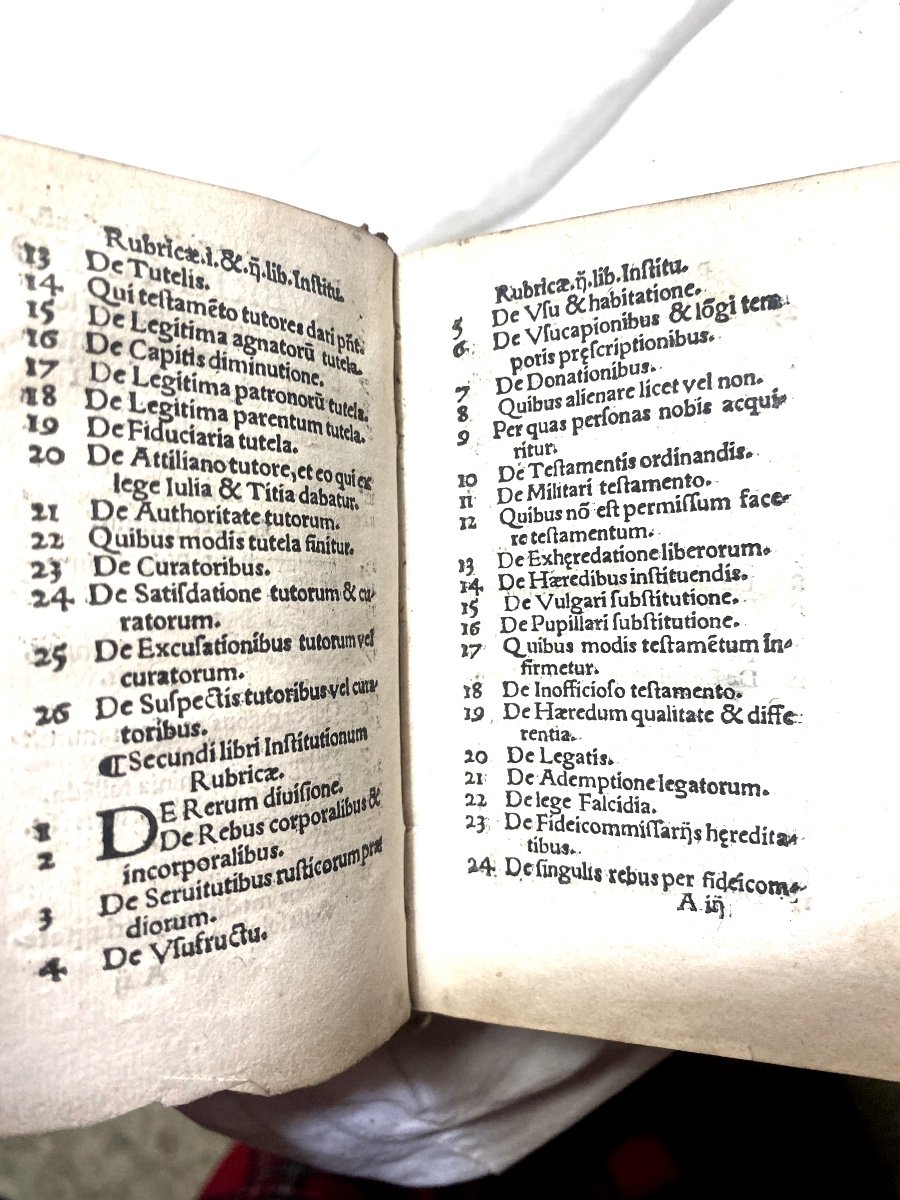 Rubricæ.i.&.ij.lib.Institu.
13 De Tutelis.
14 Qui testamēto tutores dari pñt.
15 De Legitima agnatorū tutela.
16 De Capitis diminutione.
17 De Legitima patronorū tutela.
18 De Legitima parentum tutela.
19 De Fiduciaria tutela.
20 De Attiliano tutore, et eo qui ex
lege Iulia & Titia dabatur.
21 De Authoritate tutorum.
22 Quibus modis tutela finitur.
23 De Curatoribus.
24 De Satiſdatione tutorum & cu-
ratorum.
25 De Excuſationibus tutorum vel
curatorum.
26 De Suſpectis tutoribus vel cura-
toribus.
¶Secundi libri Inſtitutionum
Rubricæ.
1 DE Rerum diuiſione.
2 De Rebus corporalibus &
incorporalibus.
3 De Seruitutibus ruſticorum præ
diorum.
4 De Vſufructu.
Rubricæ.ij.lib.Inſtitu.
5 De Vſu & habitatione.
6 De Vſucapionibus & lōgi tem
poris pręſcriptionibus.
7 De Donationibus.
8 Quibus alienare licet vel non.
9 Per quas perſonas nobis acqui-
ritur.
10 De Teſtamentis ordinandis.
11 De Militari teſtamento.
12 Quibus nō eſt permiſſum face-
re teſtamentum.
13 De Exhęredatione liberorum.
14 De Hæredibus inſtituendis.
15 De Vulgari ſubſtitutione.
16 De Pupillari ſubſtitutione.
17 Quibus modis teſtamētum in-
firmetur.
18 De Inofficioſo teſtamento.
19 De Hæredum qualitate & diffe-
rentia.
20 De Legatis.
21 De Ademptione legatorum.
22 De lege Falcidia.
23 De Fideicommiſſarijs hęredita-
tibus.
24 De ſingulis rebus per fideicom-
A iij